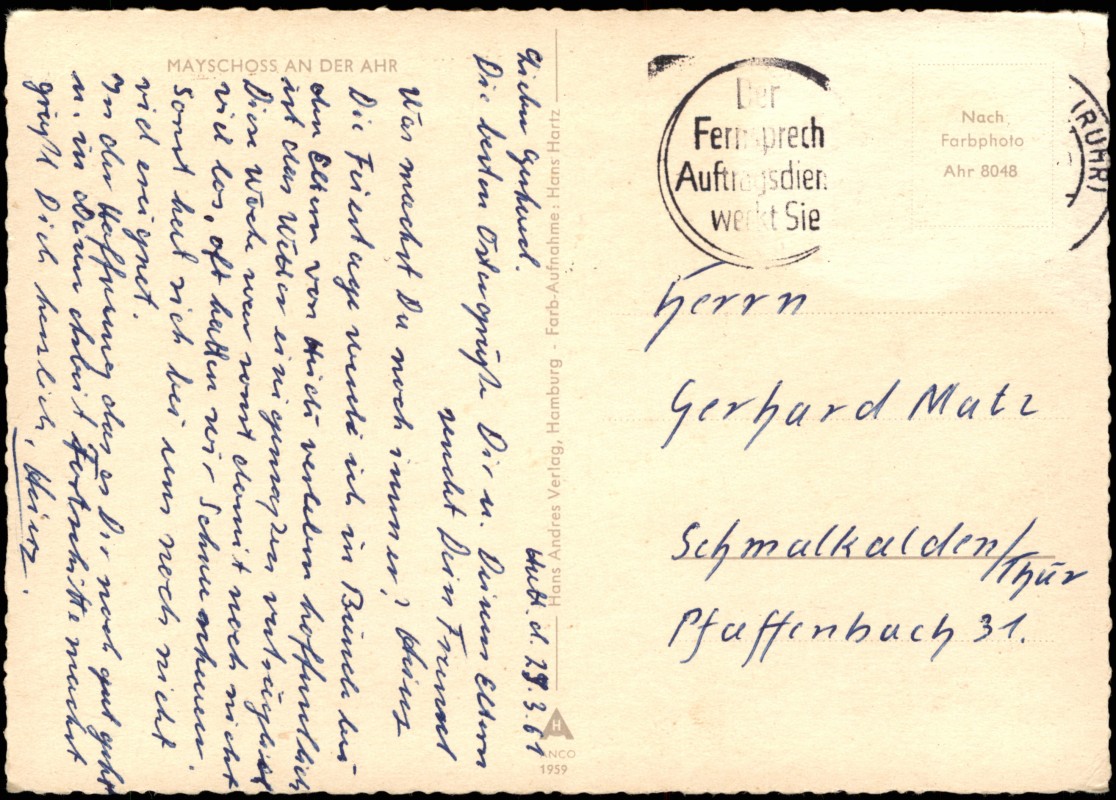 MAYSCHOSS AN DER AHR
Hatt. d. 29.3.61
Lieber Gerhard.
Die besten Ostergrüße Dir u. Deinen Eltern
sendet Dein Freund
Was machst Du noch immer? Heinz
Die Feiertage werde ich in Bünde bei
den Eltern von Heidi verleben hoffentlich
ist das Wetter einigermaßen verträglich
Diese Woche war sonst damit noch nicht
viel los, oft hatten wir Schnee
Sonst hat sich bei uns noch nicht
viel ereignet.
In der Hoffnung das es Dir noch gut geht
u. in Deine Arbeit Fortschritte machst
grüßt Dich herzlich, Heinz.
Hans Andres Verlag, Hamburg - Farb-Aufnahme: Hans Hartz
H
ANCO
1959
Der
Fernsprech
Auftragsdien
weckt Sie
(RUHR)
Nach
Farbphoto
Ahr 8048
Herrn
Gerhard Matz
Schmalkalden/Thür
Pfaffenbach 31.